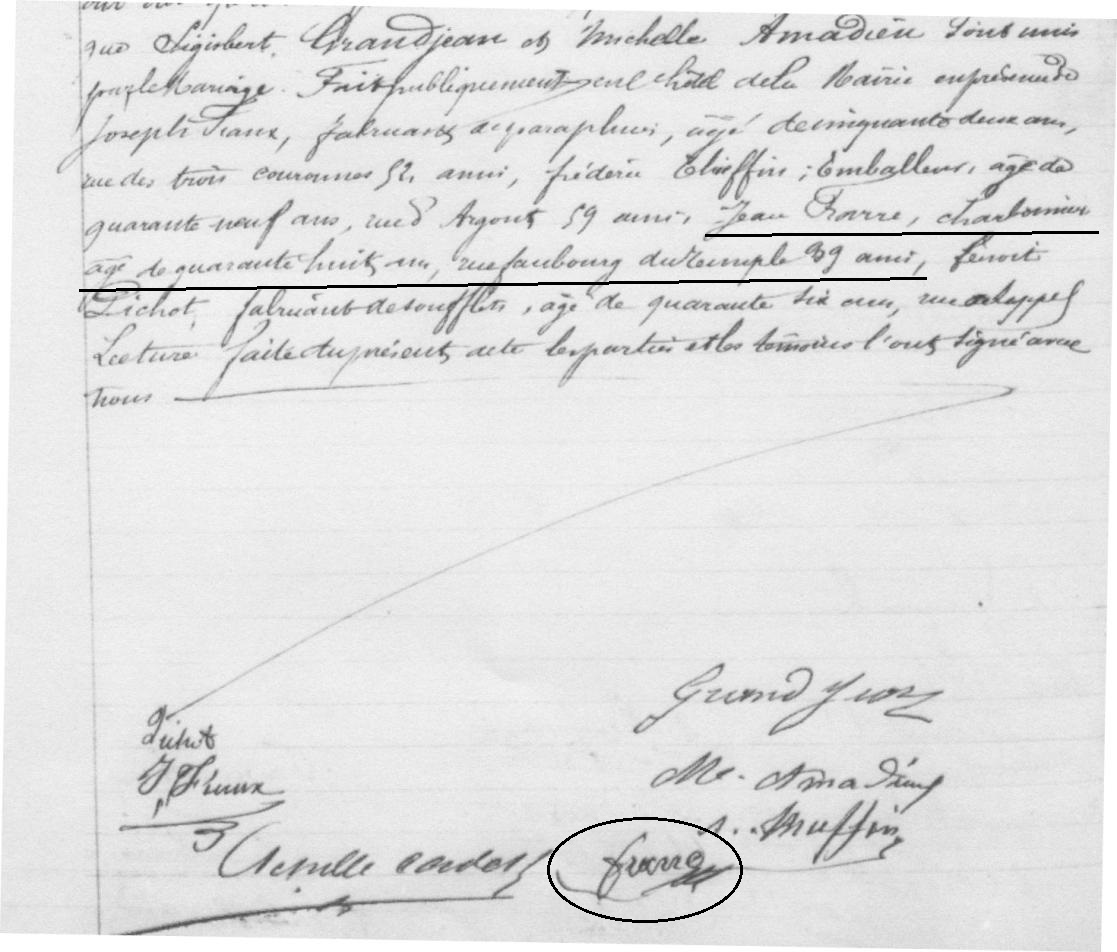 que Sigisbert Grandjean et Michelle Amadieu sont unis
par le Mariage. Fait publiquement en l'hôtel de la Mairie en présence de
Joseph fabricant de parapluies, âgé de cinquante deux ans,
rue des trois couronnes 52, amis, frédéric Emballeur, âgé de
quarante neuf ans, rue d'Argout 59 amis, Jean Frarre, charbonnier
âgé de quarante huit ans, rue faubourg du Temple 39 amis, Benoit
Pichot, fabricant de soufflets, âgé de quarante six ans, rue
Lecture faite du présent acte les parties et les témoins l'ont signé avec
nous
Grand Jean
Pichot
Me. Amadieu
Achille
frarre